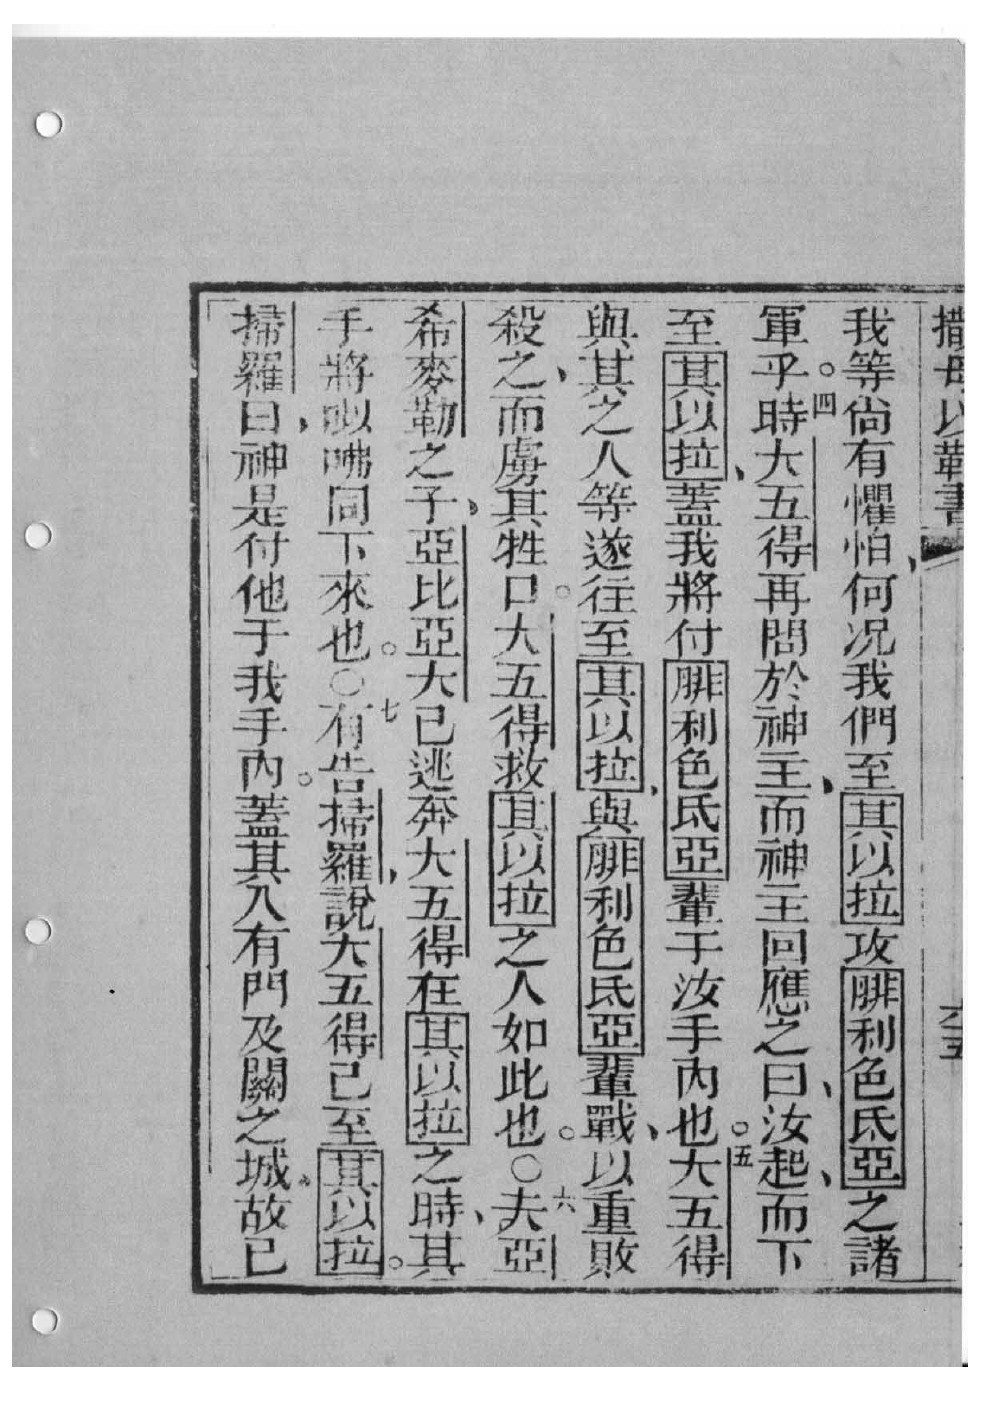 撒母以勒書
六五
我等尚有懼怕、何况我們至其以拉攻腓利色氐亞之諸
軍乎。四時大五得再問於神主、而神主回應之曰、汝起、而下
至其以拉、蓋我將付腓利色氐亞輩于汝手內也。五大五得
與其之人等遂往至其以拉、與腓利色氐亞輩戰、以重敗
殺之、而虜其牲口。大五得救其以拉之人如此也。○六夫亞
希麥勒之子、亞比亞大已逃奔大五得在其以拉之時、其
手將以咈同下來也。○七有告掃羅、說大五得已至其以拉。
掃羅曰、神是付他于我手內。蓋其入有門及關之城、故已